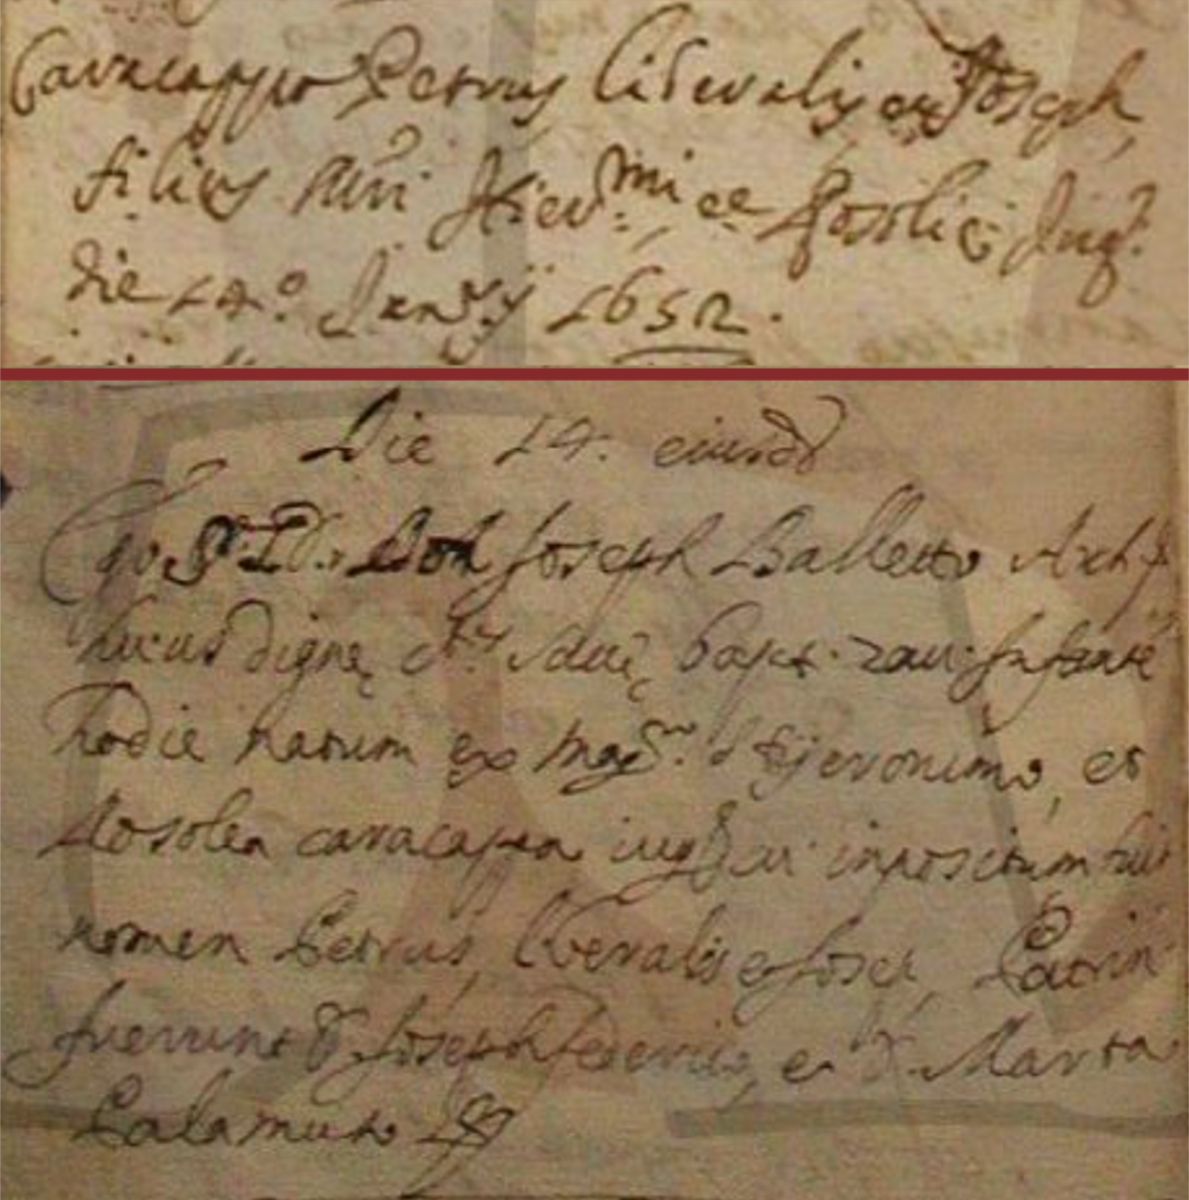 Cavacappo Petrus Liberalis et Joseph
filius Mri Hier.mi et Rosoliæ Jug.
die 14.º Janry 1652.
Die 14. eiusd
Ego Don Joseph Balletto Arch
huius digne
bapt. zavi Infante
hodie natum ex Mag.ro Hyeronimo, et
Rosolea cavacapa iug cui impositum fuit
nomen Petrus, Liberalis et Josep, Patrin
fuerunt D. Joseph Federicis, et D. Marta
Calamuto